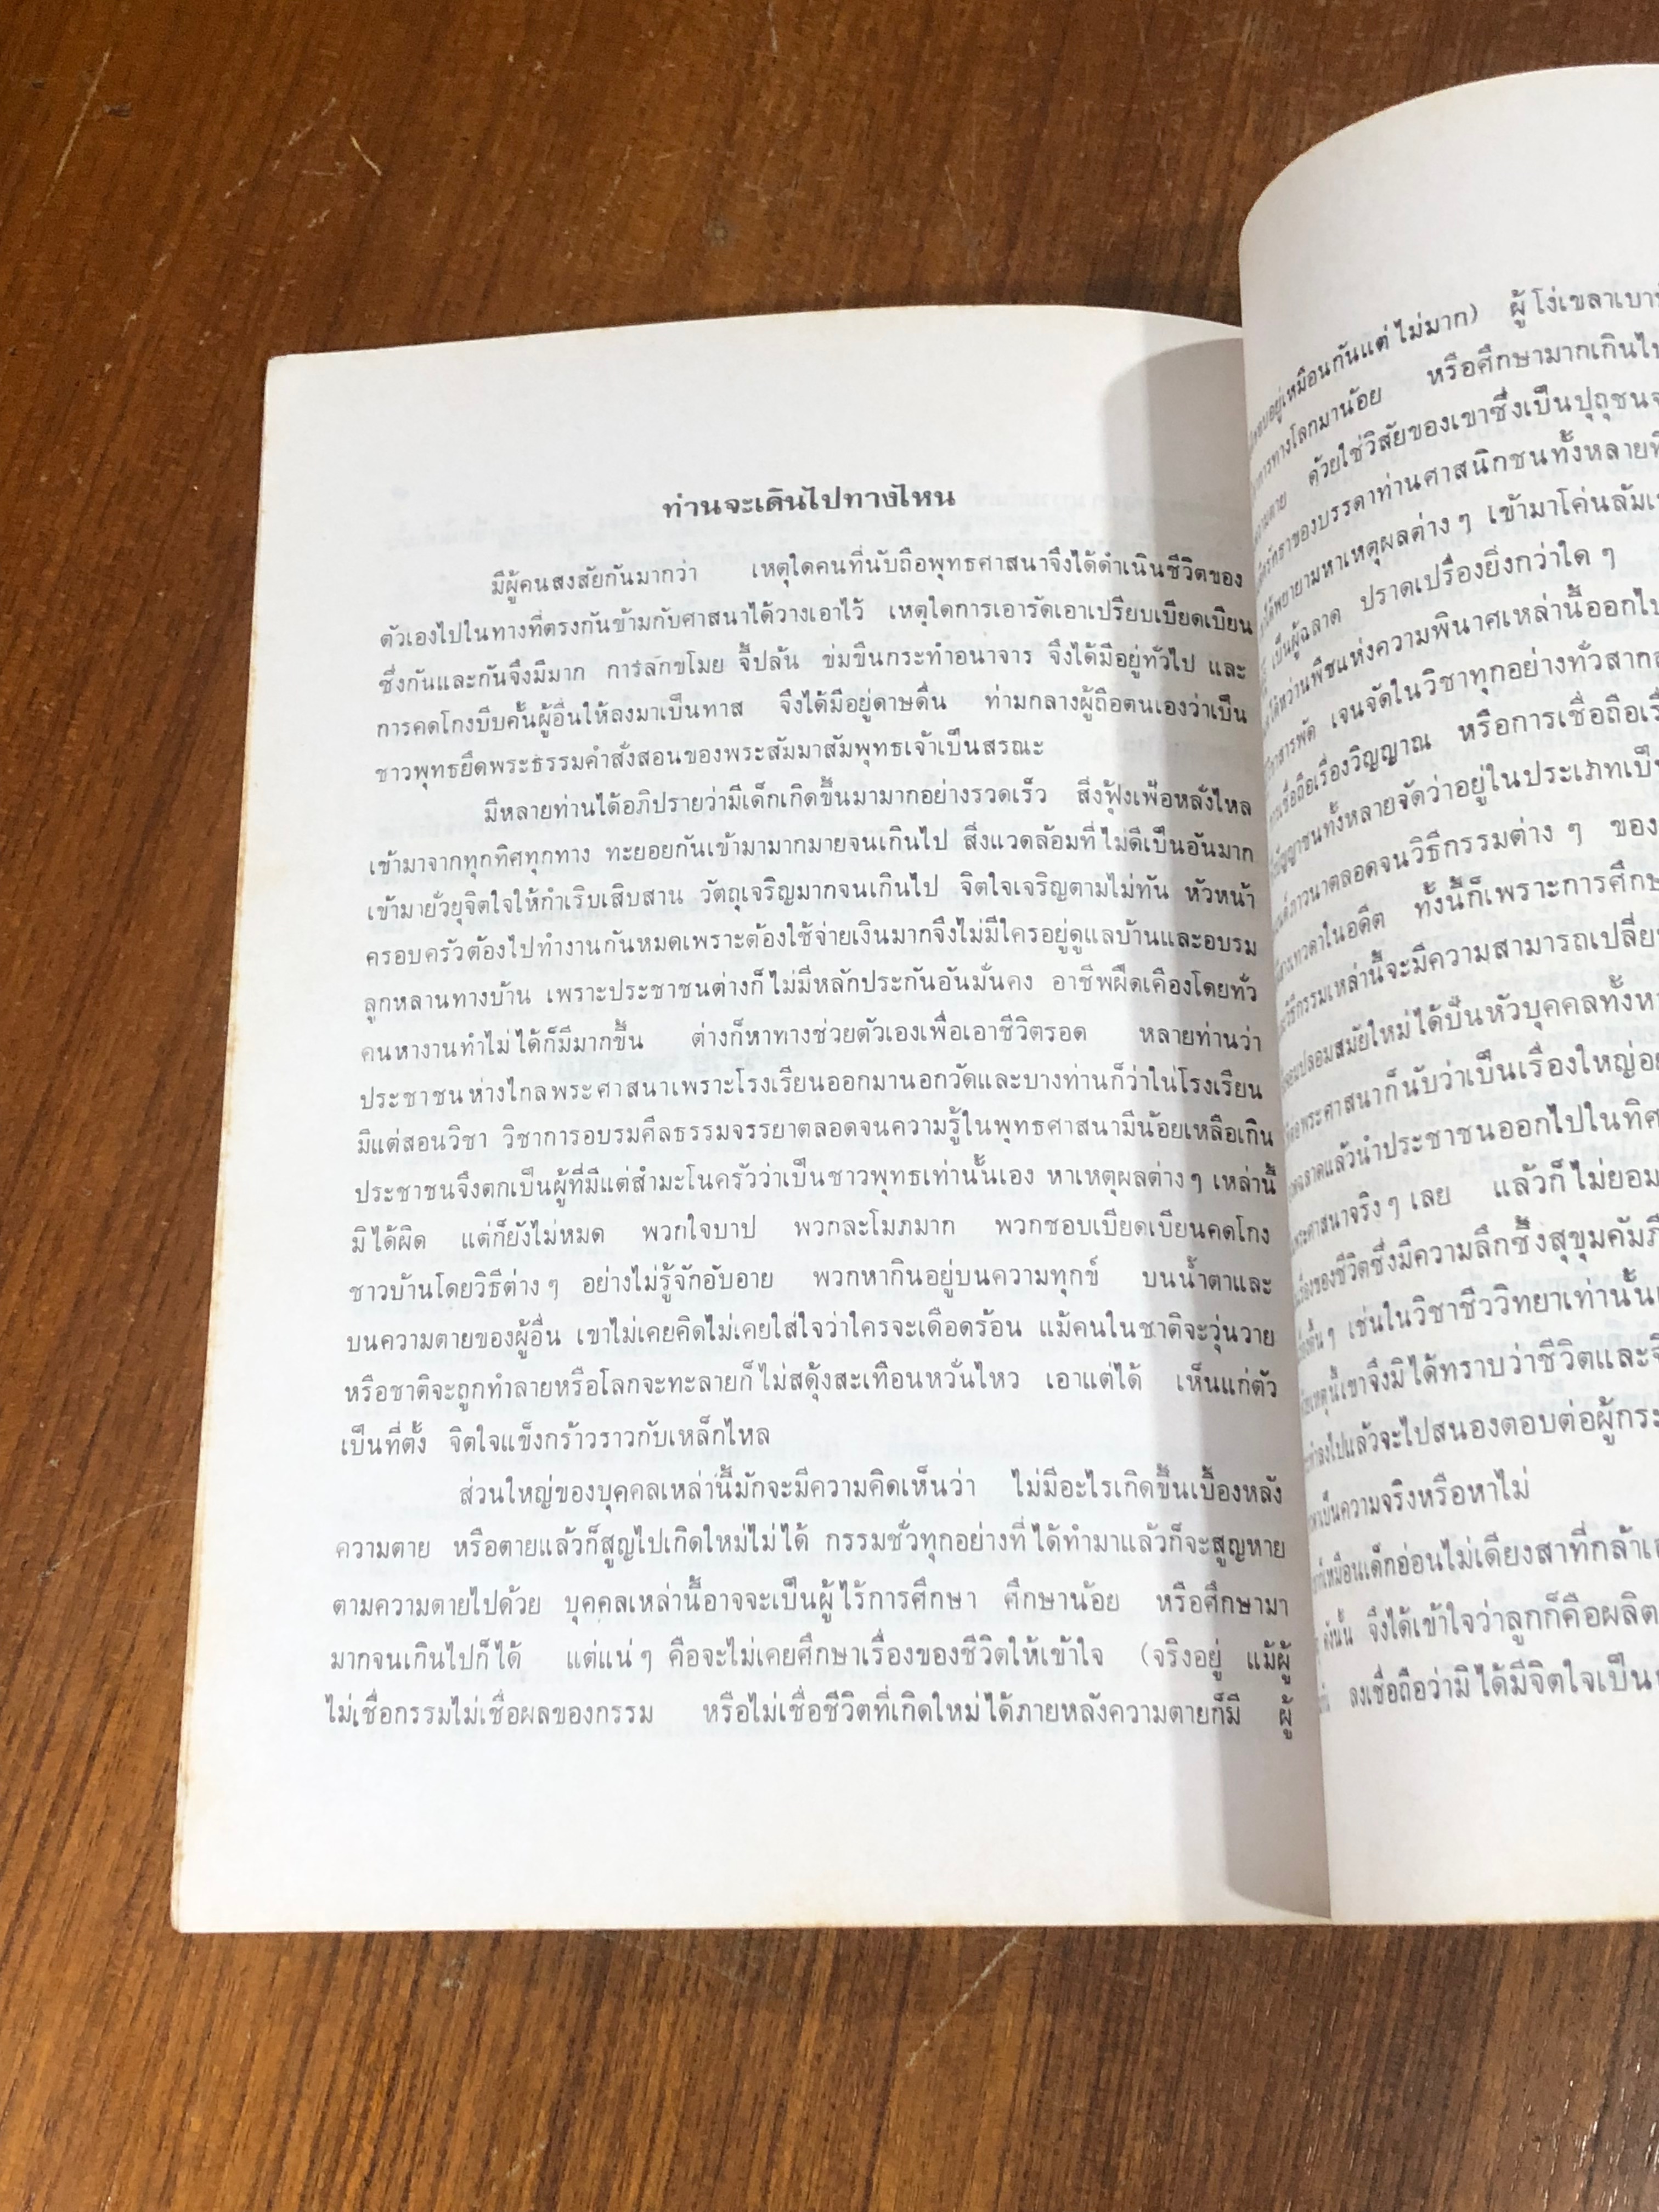 ท่านจะเดินไปทางไหน
มีผู้คนสงสัยกันมากว่า เหตุใดคนที่นับถือพุทธศาสนาจึงได้ดำเนินชีวิตของ
ตัวเองไปในทางที่ตรงกันข้ามกับศาสนาได้วางเอาไว้ เหตุใดการเอารัดเอาเปรียบเบียดเบียน
ซึ่งกันและกันจึงมีมาก การลักขโมย จี้ปล้น ข่มขืนกระทำอนาจาร จึงได้มีอยู่ทั่วไป และ
การคดโกงบีบคั้นผู้อื่นให้ลงมาเป็นทาส จึงได้มีอยู่ดาษดื่น ท่ามกลางผู้ถือตนเองว่าเป็น
ชาวพุทธยึดพระธรรมคำสั่งสอนของพระสัมมาสัมพุทธเจ้าเป็นสรณะ
มีหลายท่านได้อภิปรายว่ามีเด็กเกิดขึ้นมามากอย่างรวดเร็ว สิ่งฟุ้งเฟ้อหลั่งไหล
เข้ามาจากทุกทิศทุกทาง ทะยอยกันเข้ามามากมายจนเกินไป สิ่งแวดล้อมที่ไม่ดีเป็นอันมาก
เข้ามายั่วยุจิตใจให้กำเริบเสิบสาน วัตถุเจริญมากจนเกินไป จิตใจเจริญตามไม่ทัน หัวหน้า
ครอบครัวต้องไปทำงานกันหมดเพราะต้องใช้จ่ายเงินมากจึงไม่มีใครอยู่ดูแลบ้านและอบรม
ลูกหลานทางบ้าน เพราะประชาชนต่างก็ไม่มีหลักประกันอันมั่นคง อาชีพฝืดเคืองโดยทั่ว
คนหางานทำไม่ได้ก็มีมากขึ้น ต่างก็หาทางช่วยตัวเองเพื่อเอาชีวิตรอด หลายท่านว่า
ประชาชนห่างไกลพระศาสนาเพราะโรงเรียนออกมานอกวัดและบางท่านก็ว่าในโรงเรียน
มีแต่สอนวิชา วิชาการอบรมศีลธรรมจรรยาตลอดจนความรู้ในพุทธศาสนามีน้อยเหลือเกิน
ประชาชนจึงตกเป็นผู้ที่มีแต่สำมะโนครัวว่าเป็นชาวพุทธเท่านั้นเอง หาเหตุผลต่างๆ เหล่านี้
มิได้ผิด แต่ก็ยังไม่หมด พวกใจบาป พวกละโมภมาก พวกชอบเบียดเบียนคดโกง
ชาวบ้านโดยวิธีต่างๆ อย่างไม่รู้จักอับอาย พวกหากินอยู่บนความทุกข์ บนน้ำตาและ
บนความตายของผู้อื่น เขาไม่เคยคิดไม่เคยใส่ใจว่าใครจะเดือดร้อน แม้คนในชาติจะวุ่นวาย
หรือชาติจะถูกทำลายหรือโลกจะทะลายก็ไม่สดุ้งสะเทือนหวั่นไหว เอาแต่ได้ เห็นแก่ตัว
เป็นที่ตั้ง จิตใจแข็งกร้าวราวกับเหล็กไหล
ส่วนใหญ่ของบุคคลเหล่านี้มักจะมีความคิดเห็นว่า ไม่มีอะไรเกิดขึ้นเบื้องหลัง
ความตาย หรือตายแล้วก็สูญไปเกิดใหม่ไม่ได้ กรรมชั่วทุกอย่างที่ได้ทำมาแล้วก็จะสูญหาย
ตามความตายไปด้วย บุคคลเหล่านี้อาจจะเป็นผู้ไร้การศึกษา ศึกษาน้อย หรือศึกษามา
มากจนเกินไปก็ได้ แต่แน่ๆ คือจะไม่เคยศึกษาเรื่องของชีวิตให้เข้าใจ (จริงอยู่ แม้ผู้
ไม่เชื่อกรรมไม่เชื่อผลของกรรม หรือไม่เชื่อชีวิตที่เกิดใหม่ได้ภายหลังความตายก็มี ผู้
อยู่เหมือนกันแต่ไม่มาก) ผู้โง่เขลาเบา
ทางโลกมาน้อย หรือศึกษามากเกินไป
ด้วยใช่วิสัยของเขาซึ่งเป็นปุถุชน
ของบรรดาท่านศาสนิกชนทั้งหลาย
ได้พยายามหาเหตุผลต่างๆ เข้ามาโค่นล้ม
เป็นผู้ฉลาด ปราดเปรื่องยิ่งกว่าใดๆ
ได้หว่านพืชแห่งความพินาศเหล่านี้ออกไป
เจนจัดในวิชาทุกอย่างทั่วสากล
เชื่อถือเรื่องวิญญาณ หรือการเชื่อถือ
ทั้งหลายจัดว่าอยู่ในประเภทเป็น
ภาวนาตลอดจนวิธีกรรมต่างๆ ของ
เทวดาในอดีต ทั้งนี้ก็เพราะการศึกษ
วิธีกรรมเหล่านี้จะมีความสามารถเปลี่ย
ปลอมสมัยใหม่ได้ปั่นหัวบุคคลทั้ง
พระศาสนาก็นับว่าเป็นเรื่องใหญ่
ฉลาดแล้วนำประชาชนออกไปในทิศ
พระศาสนาจริงๆ เลย แล้วก็ไม่ยอม
เรื่องของชีวิตซึ่งมีความลึกซึ้งสุขุมคัมภี
เช่นในวิชาชีววิทยาเท่านั้น
เหตุนี้เขาจึงมิได้ทราบว่าชีวิตและ
ลงไปแล้วจะไปสนองตอบต่อผู้กระ
เป็นความจริงหรือหาไม่
เหมือนเด็กอ่อนไม่เดียงสาที่กล้า
ดังนั้น จึงได้เข้าใจว่าลูกก็คือผลิต
ลงเชื่อถือว่ามิได้มีจิตใจเป็น